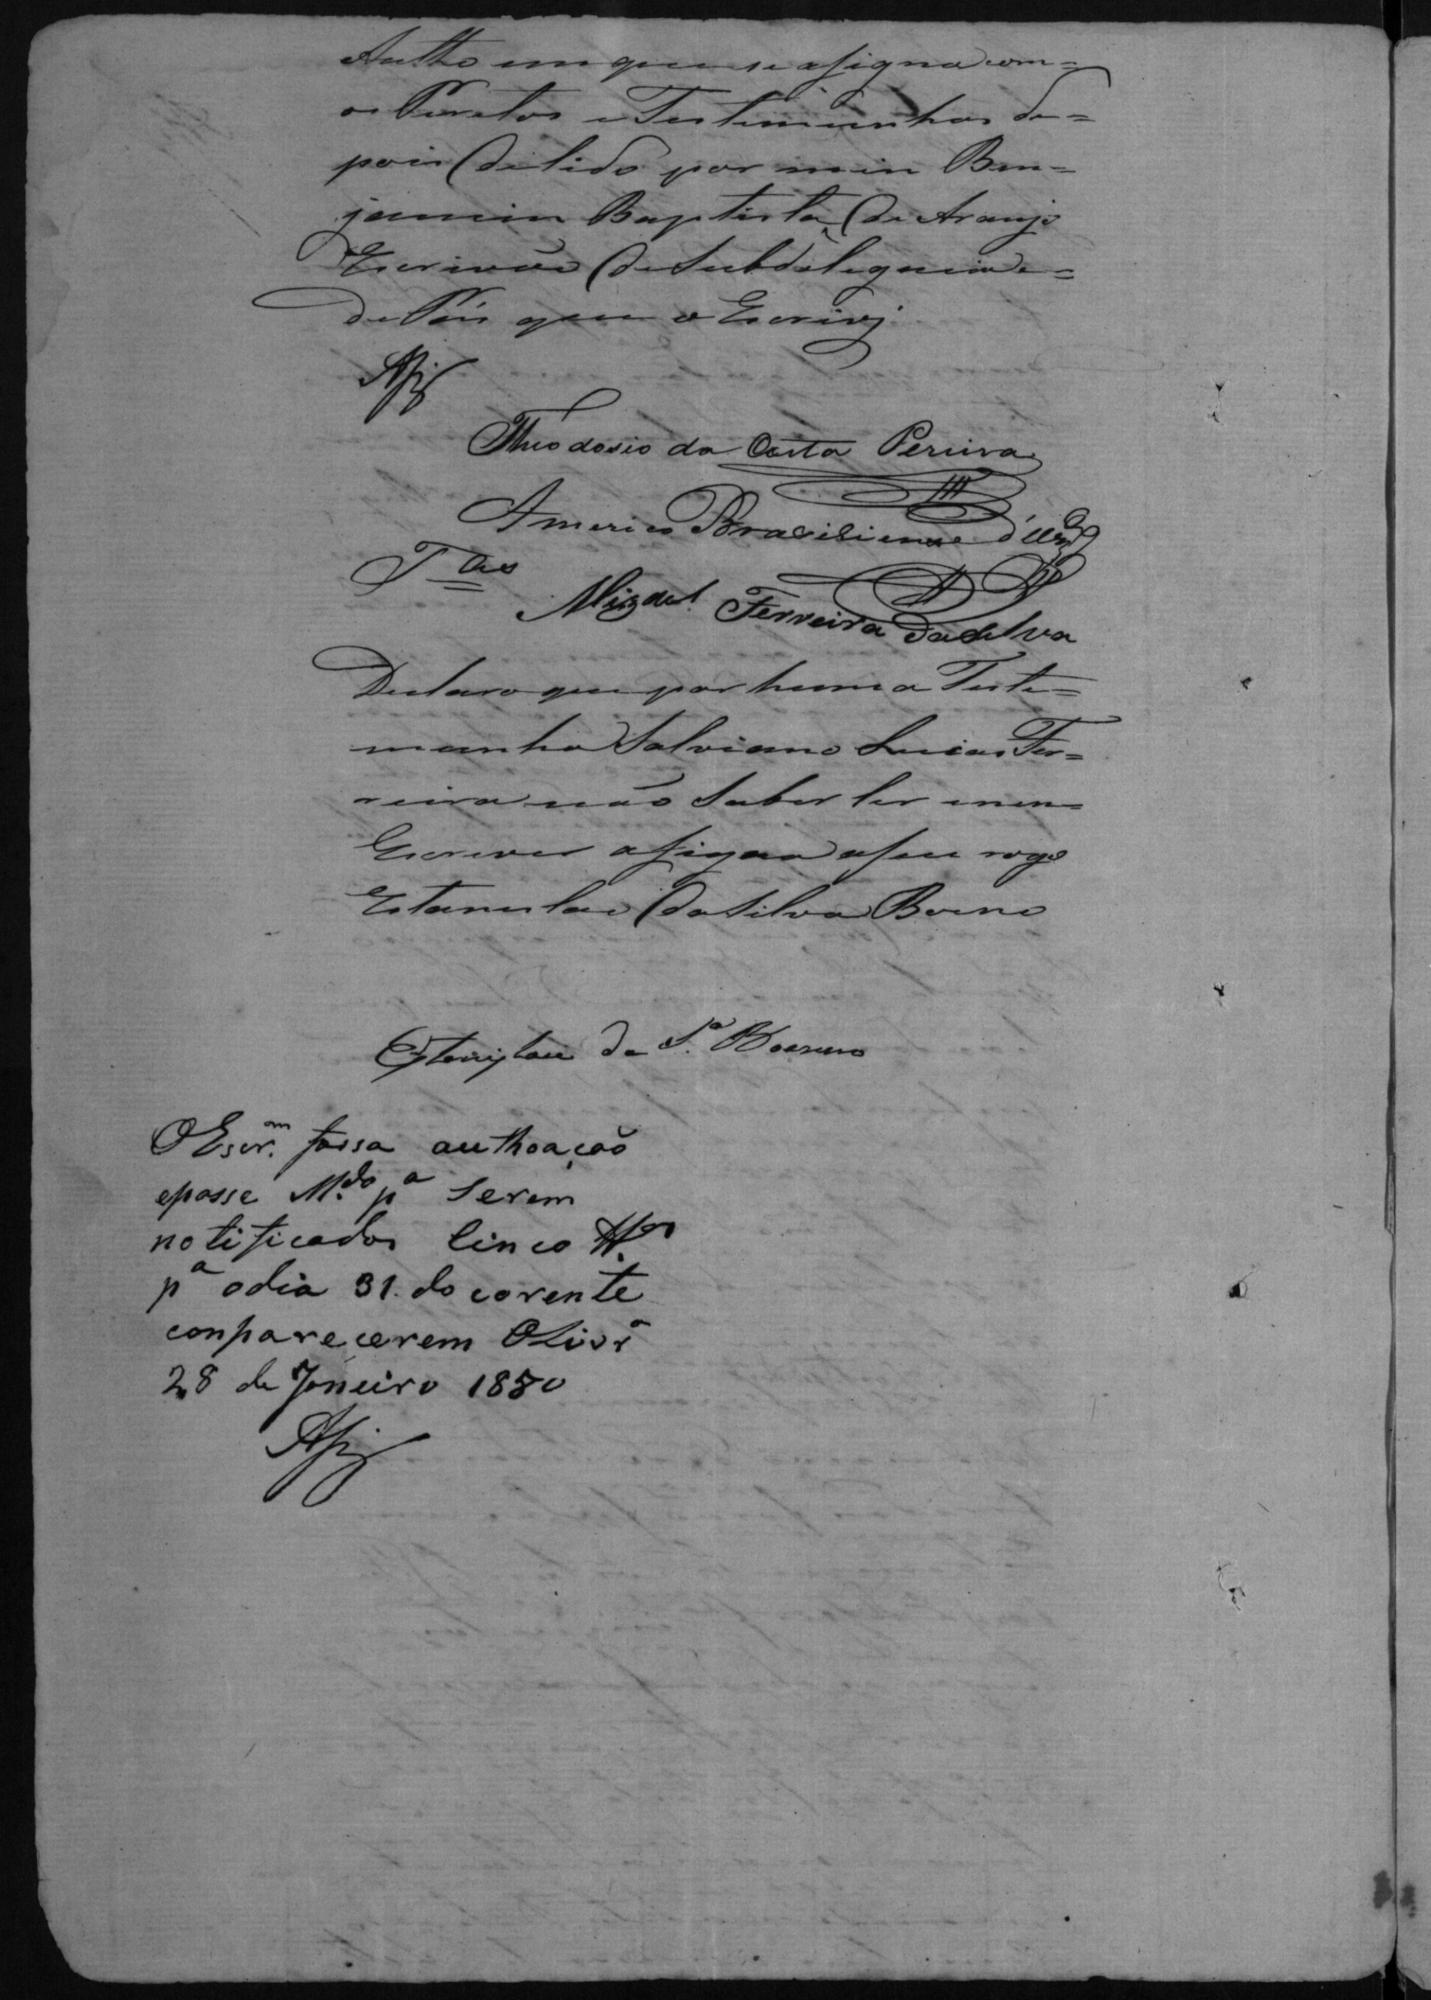 Autho em que se assigna com=
os Peretos e Testimunhas de=
pois de lido por mim Ben=
jamim Baptista de Araujo
Escrivão de Subdeleguacia e=
de Páis que o Escrivj
Assis
Theodosio da Costa Pereira
Americo Brasiliense d'
T.as
Migdel Ferreira da Selva
Declaro que por huma Teste=
munha Salviano Lucas Fer=
reira não saber ler e nem=
Escrever assigna a seu rogo
Estanislao da Silva Boeno
Estanislau da S.a Boeno
O Escr.am fassa authoação
e passe M.do p.a serem
notificados Cinco tt.as
p.a o dia 31. do corente
conparecerem Olivr.a
28 de Janeiro 1880
Assis